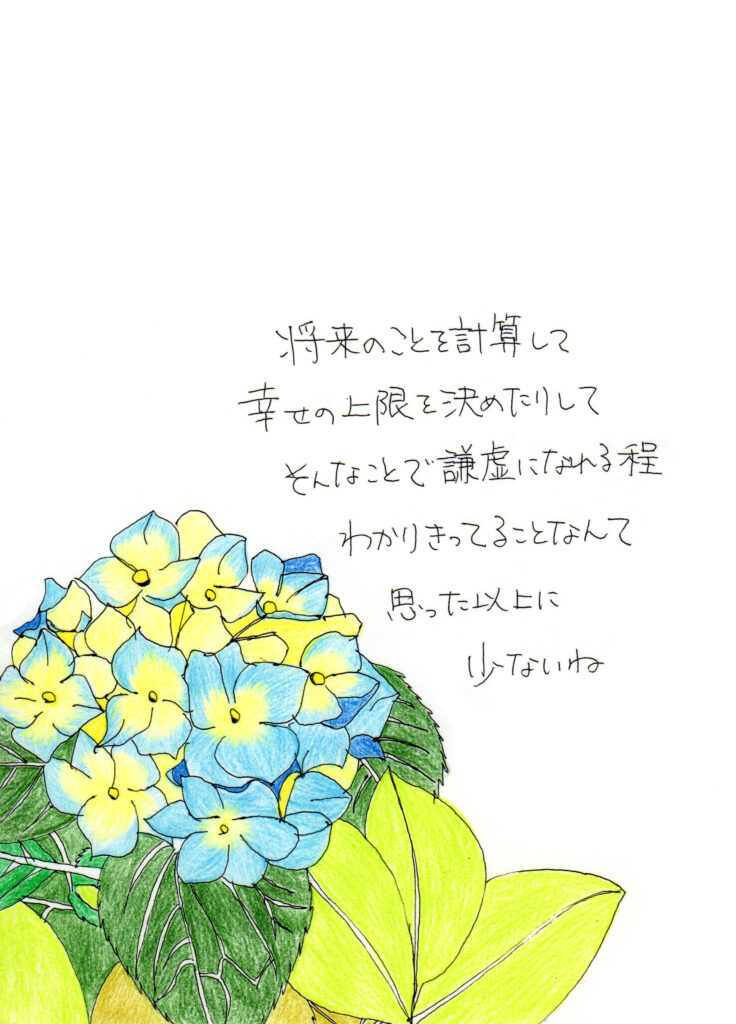 将来のことを計算して
幸せの上限を決めたりして
そんなことで謙虚になれる程
わかりきってることなんて
思った以上に
少ないね